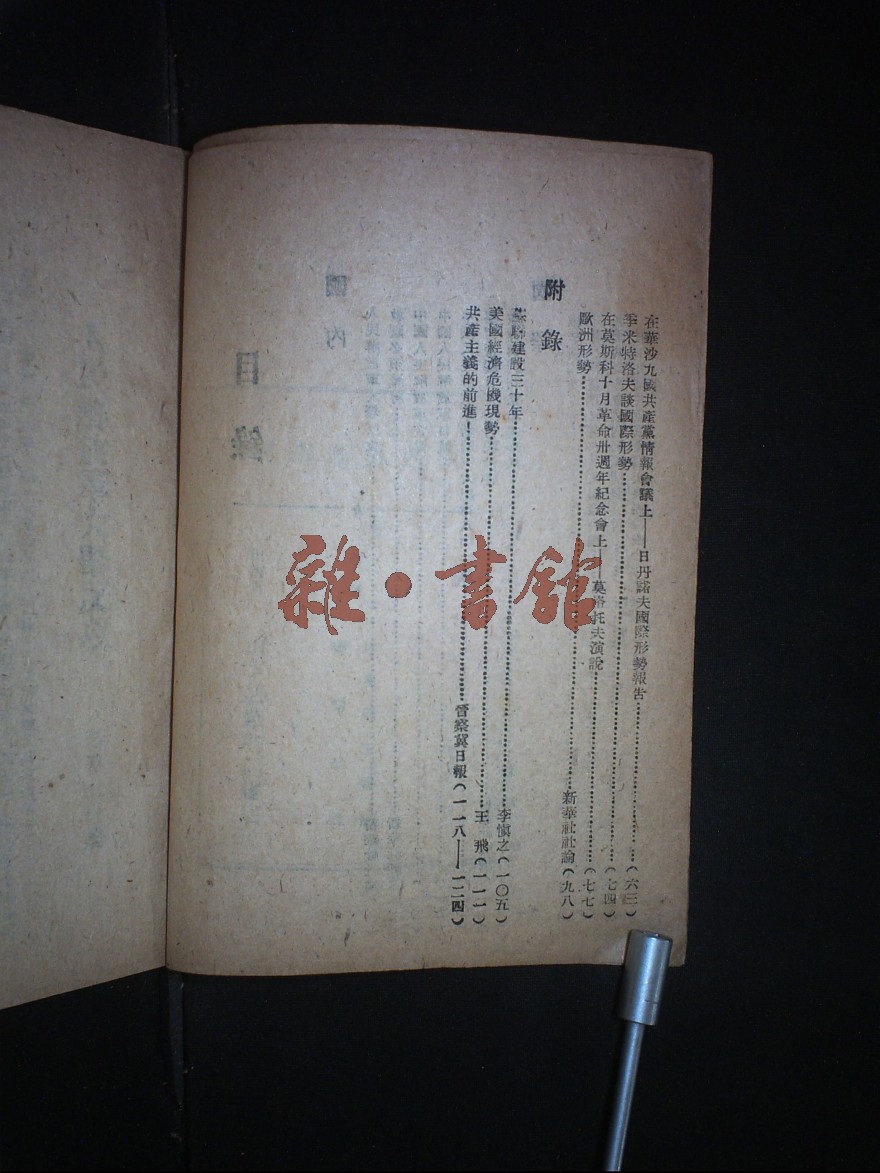 在華沙九國共產黨情報會議上——日丹諾夫國際形勢報告………(六三)
季米特洛夫談國際形勢………(七四)
在莫斯科十月革命卅週年紀念會上——莫洛托夫演說………(七七)
歐洲形勢………新華社社論(九八)
附錄
蘇聯建設三十年………李愼之(一〇五)
美國經濟危機現勢………王飛(一一一)
共產主義的前進!………晉察冀日報(一一八——一二四)
雜·書館